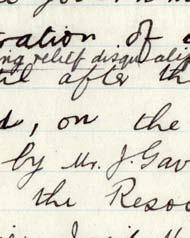 ration of a
ng relief disqualif
after th
d, on the
by Mr. J. Gav
the Reso